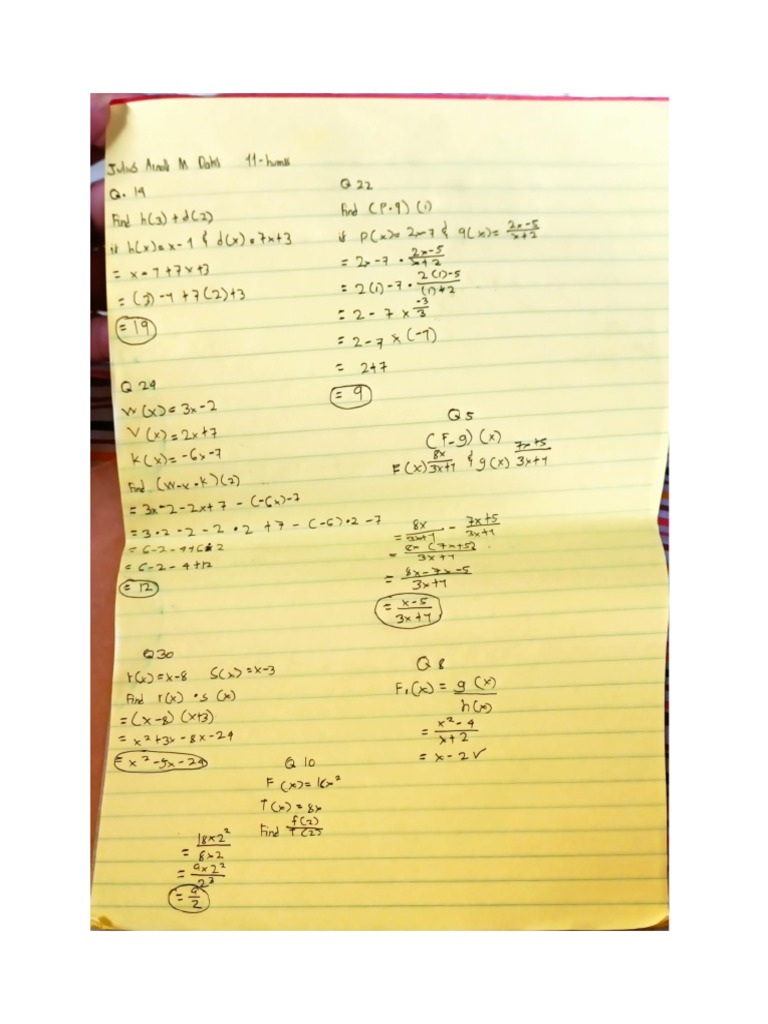 M 11-humss
Q. 19
Find h(3) + d(2)
if h(x) = x - 1 & d(x) = 7x+3
= x - 1 + 7x+3
= (3) - 1 + 7(2)+3
= 19
Q 22
Find (P.q) (1)
if P(x) = 2x-7 & q(x) = 2x-5/x+2
= 2x-7 • 2x-5/x+2
= 2(1)-7 • 2(1)-5/(1)+2
= 2 - 7 x -3/3
= 2-7 x (-1)
= 2+7
= 9
Q 24
W(x) = 3x-2
V(x) = 2x+7
K(x) = -6x-7
Find (W-v•k)(2)
= 3x-2-2x+7 - (-6x)-7
= 3•2-2-2•2+7-(-6)•2-7
= 6-2-4+6•2
= 6-2-4+12
= 12
Q 5
(F-g)(x)
F(x) 8x/3x+1 & g(x) 7x+5/3x+1
= 8x/3x+1 - 7x+5/3x+1
= 8x (7x+5)/3x+1
= 8x-7x-5/3x+1
= x-5/3x+1
Q 30
r(x) = x-8 S(x) = x-3
Find r(x) • s(x)
= (x-8)(x+3)
= x²+3x-8x-24
= x²-5x-24
Q 8
F₁(x) = g(x)/h(x)
= x²-4/x+2
= x-2
Q 10
F(x) = 16x²
T(x) = 8x
Find f(2)/T(2)
= 18x2²/8x2
= 9x2²/2³
= 9/2